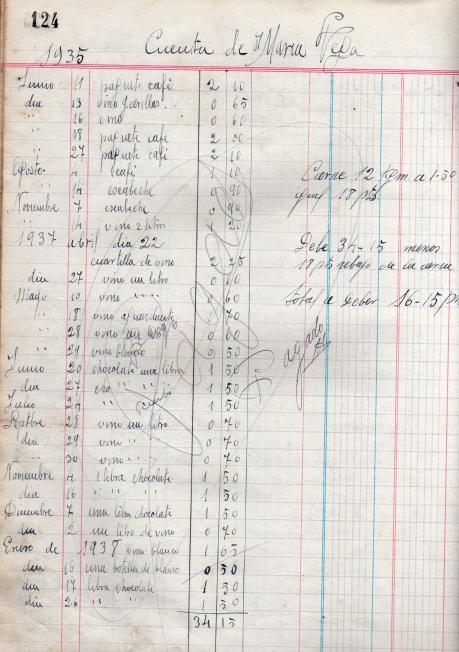 124
Cuenta de Maria Vega
1935
Junio 11 paquete café 2 10
dia 13 vino 0 65
" 16 vino 0 60
" 18 paquete cafe 2 00
" 27 paquete café 2 10
Agosto 4 café 10
" 14 escabeche 90
Noviembre 7 escabeche 0 90
" 14 vino 2 litros 1 20
1937 abril dia 22
cuartilla de vino 2 25
dia 27 vino un litro 0 60
Mayo 10 vino " " 60
" 18 vino aguardiente
" 28 vino 60
" 29 vino blanco 0 50
Junio 20 chocolate una libra 1 50
dia 27 " " 1 50
Julio 24 " " 1 50
Septbre 28 vino un litro 0 70
dia 29 vino " " 0 70
" 30 vino " " 0 70
Noviembre 4 1 libra chocolate 1 50
dia 16 " " " 1 50
Diciembre 7 una libra chocolate 1 50
dia 2 un litro de vino 0 70
Enero de 1938 vino blanco 1 05
dia 16 una botella de blanco 0 50
dia 17 libra chocolate 1 50
dia 26 " " 1 50
34 15
Carne 12 kgm. a 1-50
18 pts
Debe 34-15 menos
18 pts rebajo de la carne
total a Deber 16-15 pts
Pagado